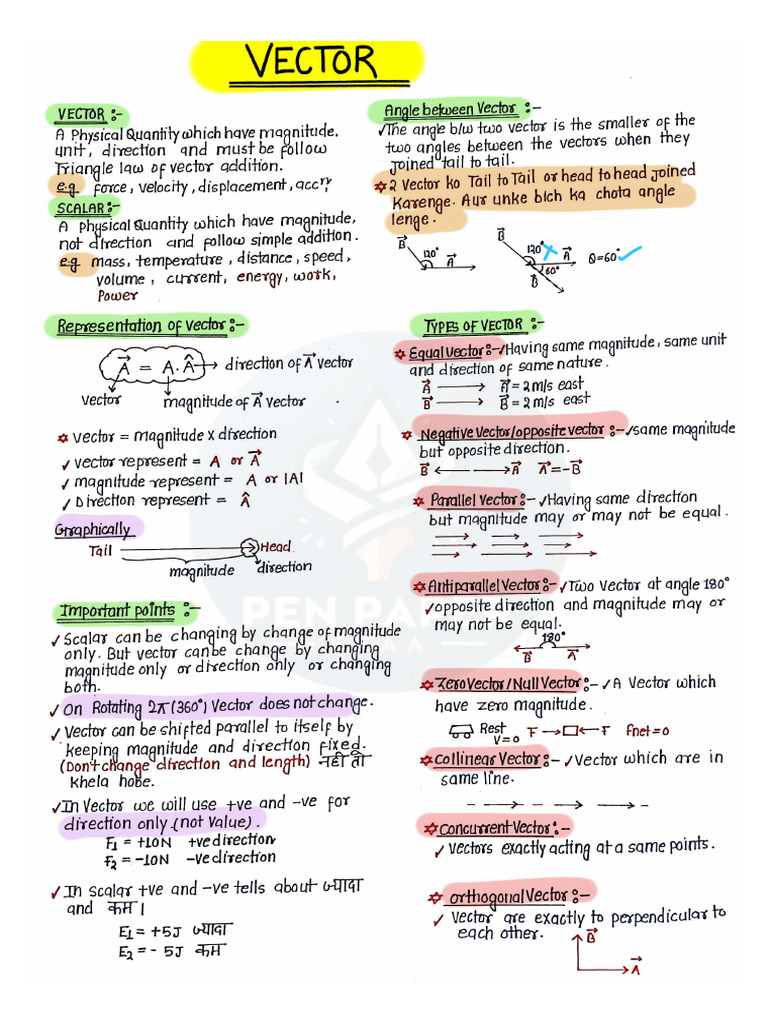 VECTOR
VECTOR :-
A Physical Quantity which have magnitude,
unit, direction and must be follow
Triangle law of vector addition.
e.g force, velocity, displacement, accⁿ,
SCALAR:-
A physical Quantity which have magnitude,
not direction and follow simple addition.
e.g mass, temperature, distance, speed,
volume, current, energy, work,
Power
Representation of vector:-
A⃗ = A.Â → direction of A⃗ vector
vector magnitude of A⃗ vector
vector = magnitude x direction
✓ vector represent = A or A⃗
✓ magnitude represent = A or |A|
✓ Direction represent = Â
Graphically
Tail Head
magnitude direction
Important points :-
✓ Scalar can be changing by change of magnitude
only. But vector can be change by changing
magnitude only or direction only or changing
both.
✓ On Rotating 2π (360°) Vector does not change.
✓ Vector can be shifted parallel to itself by
keeping magnitude and direction fixed.
(Don't change direction and length) नहीं तो
khela hobe.
✓ In Vector we will use +ve and -ve for
direction only (not value).
F₁ = +10N +ve direction
F₂ = -10N -ve direction
✓ In scalar +ve and -ve tells about ज्यादा
and कम।
E₁ = +5J ज्यादा
E₂ = - 5J कम
Angle between Vector :-
✓ The angle b/w two vector is the smaller of the
two angles between the vectors when they
Joined tail to tail.
2 Vector ko Tail to Tail or head to head joined
Karenge. Aur unke bich ka chota angle
lenge.
B⃗ 120° A⃗
B⃗ 120° A⃗ 60° B⃗ θ=60° ✓
TYPES OF VECTOR :-
Equal vector:- ✓ Having same magnitude, same unit
and direction of same nature.
A⃗ → A⃗ = 2 m/s east
B⃗ → B⃗ = 2 m/s east
Negative Vector/opposite vector :- ✓ same magnitude
but opposite direction.
B⃗ ← → A⃗ A⃗=-B⃗
Parallel Vector:- ✓ Having same direction
but magnitude may or may not be equal.
Antiparallel Vector:- ✓ Two Vector at angle 180°
✓ opposite direction and magnitude may or
may not be equal.
180°
B⃗ A⃗
Zero Vector/Null Vector:- ✓ A Vector which
have zero magnitude.
Rest V=0 F→□←F fnet=0
collinear Vector:- ✓ Vector which are in
same line.
Concurrent Vector:-
✓ Vectors exactly acting at a same points.
orthogonal Vector:-
✓ Vector are exactly to perpendicular to
each other.
B⃗
A⃗